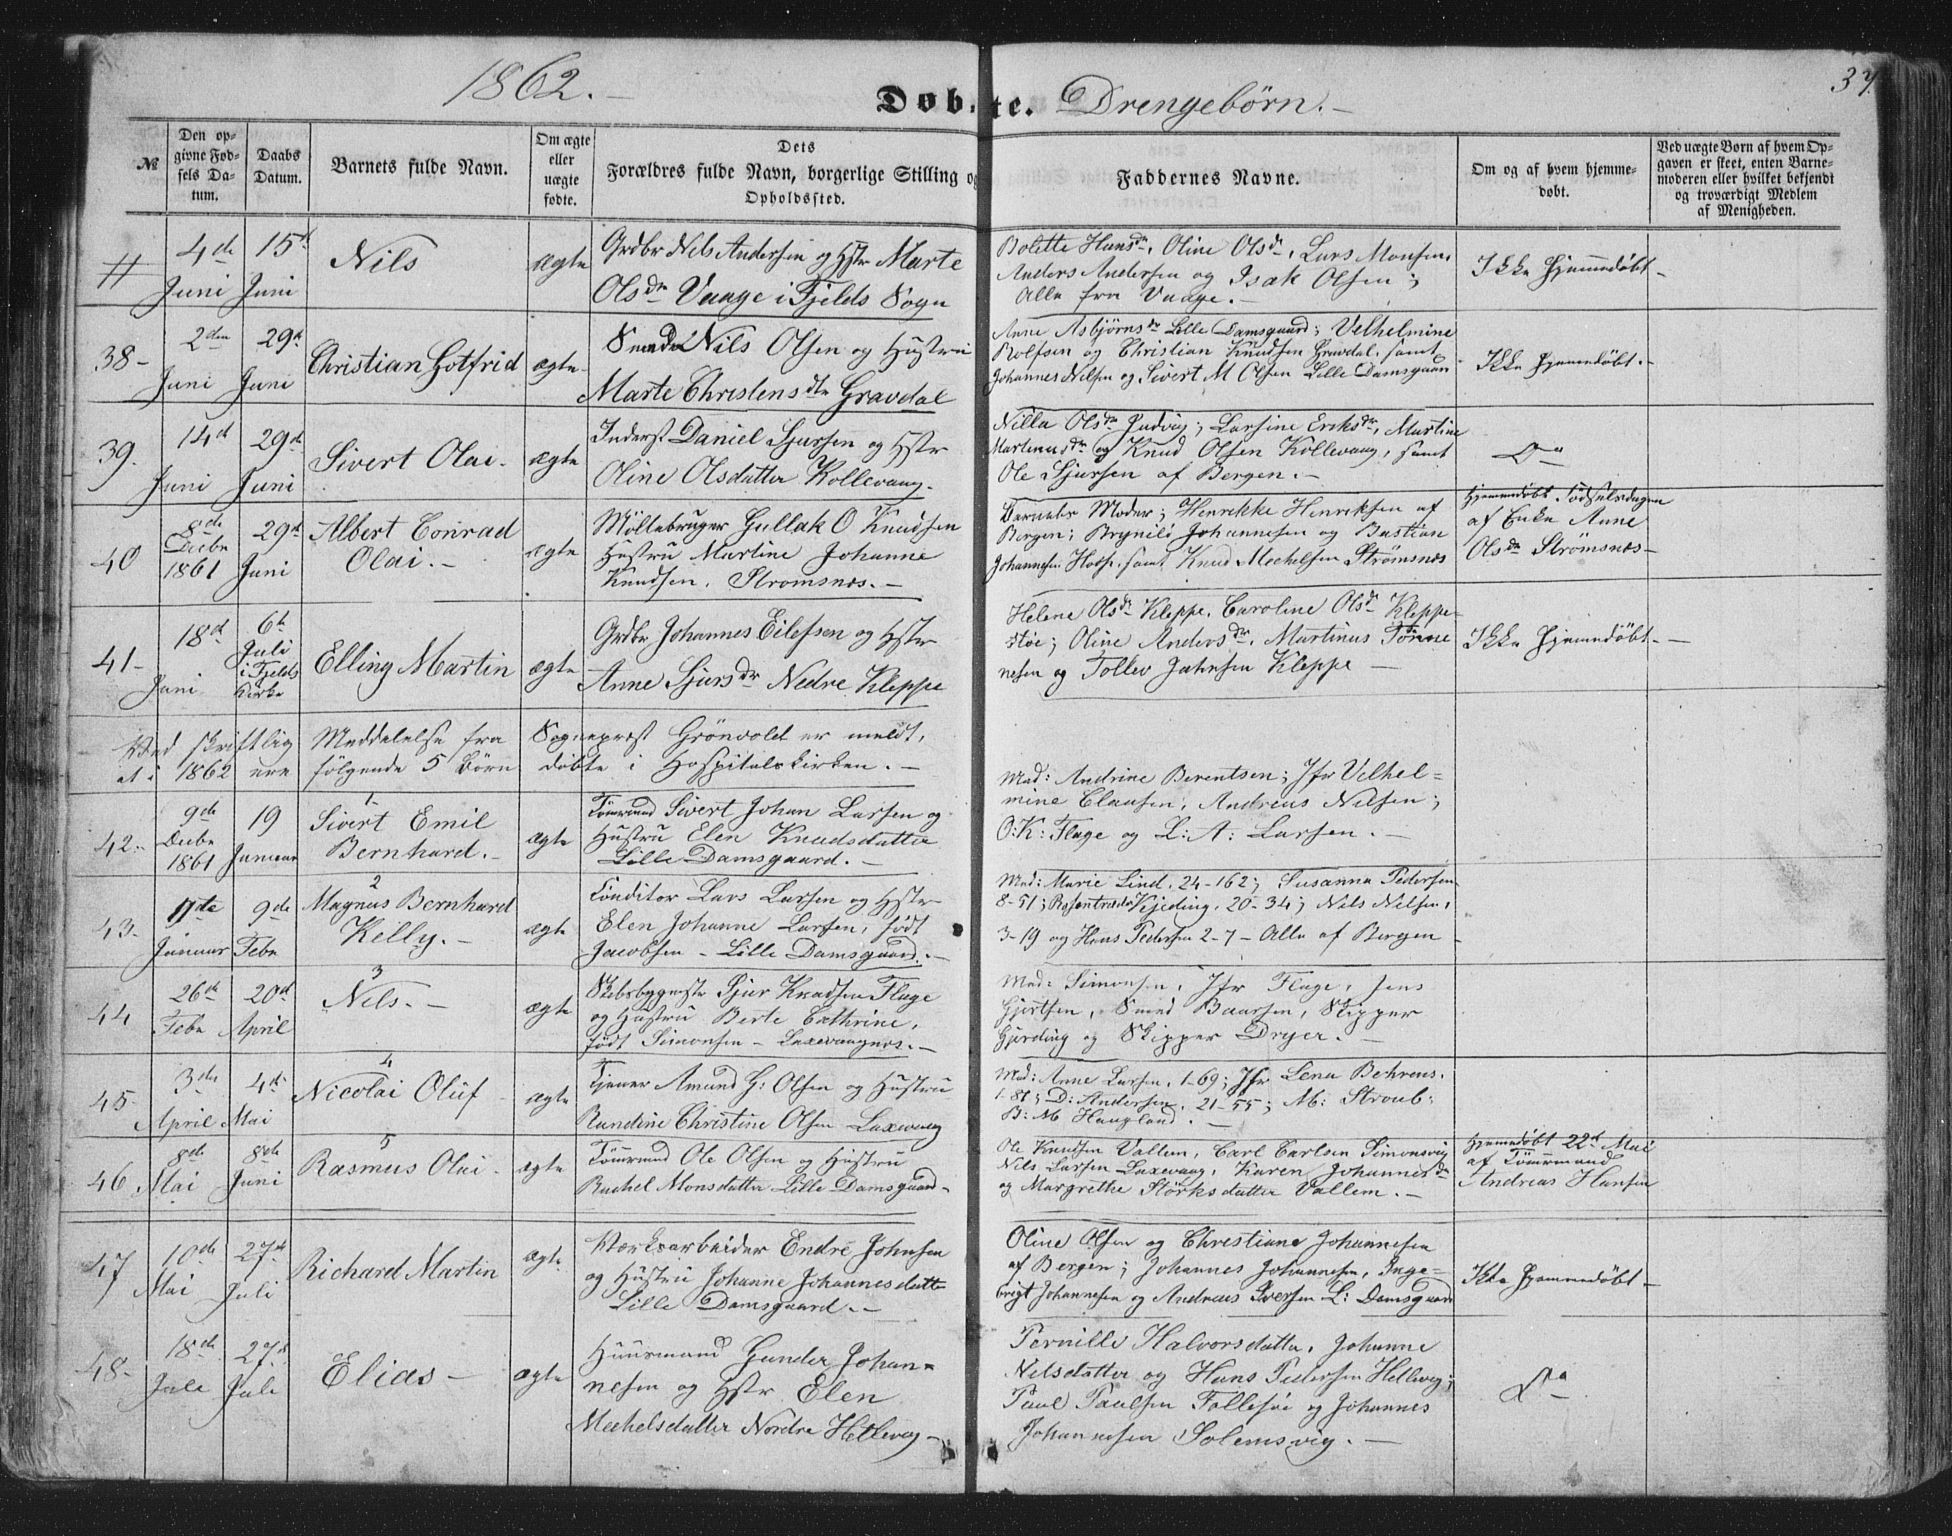 1862.-
Döbte. Drengebörn.-
37.
№
Den op-
givne Fød-
sels Da-
tum.
Daabs
Datum.
Barnets fulde Navn.
Om ægte
eller
uægte
fødte.
Dets
Forældres fulde Navn, borgerlige Stilling og
Opholdssted.
Faddernes Navne.
Om og af hvem hjemme-
døbt.
Ved uægte Børn af hvem Op-
gaven er skeet, enten Barne-
moderen eller hvilket bekjendt
og troværdigt Medlem
af Menigheden.
4de Juni
15d Juni
Nils
ægte
Grdbr Nels Andersen og Hstr Marte
Olsdr Vaage i Fjelds Sogn
Bolette Hansdr, Oline Olsdr, Lars Monsen,
Anders Andersen og Isak Olsen;
Alle fra Vaage.-
Ikke Hjemmedöbt-
38-
2den Juni
29d Juni
Christian Gotfrid
ægte
Nils Olsen og Hustru
Marte Christensdtr Gravdal
Anne Asbjörnsdr Lille Damsgaard; Velhelmine
Rolfsen og Christian Knudsen Gravdal, samt
Johannes Nilsen og Sivert M Olsen Lille Damsgaard
Ikke Hjemmedöbt.-
39.
14d Juni
29d Juni
Sivert Olai.
ægte
Inderst Daniel Sjursen og Hstr
Oline Olsdatter Kollevaag.
Nille Olsdr Ludvig; Larsine Eriksdr, Martine
Martinusdr og Knud Olsen Kollevaag, samt
Ole Sjursen af Bergen.-
Do
40
8de Decbr 1861
29d Juni
Albert Conrad
Olai.-
ægte
Möllebruger Gullak O Knudsen
Hustru Martine Johanne
Knudsen, Strömsnes.-
Barnets Moder; Henrikke Henriksen af
Bergen; Brynild Johannesen og Bastian
Johannesen Hope, samt Knud Mechelsen Strömsnæs
Hjemmedöbt Födselsdagen
af Enke Anne
Olsdr Strömsnæs-
41-
18d Juni
6te Juli i Fjelds Kirke
Elling Martin
ægte
Grdbr Johannes Eilefsen og Hstr
Anne Sjursdr Nedre Kleppe
Helene Olsdr Kleppe, Caroline Olsdr Kleppe-
stöe; Oline Andersdr, Martinus Tönne
nesen og Tollev Jahnsen Kleppe -
Ikke Hjemmedöbt.-
Ved skriftlig Meddelelse fra Sognepræst Grönvold er meldt,
at i 1862 ere fölgende 5 Börn döbte i Hospitalskirken.-
42.
9de Decbr 1861
19 Januar
1
Sivert Emil
Bernhard.-
ægte
Tömmrmd Sivert Johan Larsen og
Hustru Elen Knudsdatter
Lille Damsgaard.-
Mad: Andrine Berentsen; Jfr Velhel=
mine Clausen, Andreas Nilsen;
O:K: Flage og L:A: Larsen.-
43.
Januar
9de Febr
2
Magnus Bernhard
Kelly.-
ægte
Conditor Lars Larsen og Hstr
Elen Johanne Larsen, födt
Jacobsen - Lille Damsgaard.-
Mad: Marie Lind, 24-162; Susanna Pedersen
8-51; Kjeding, 20-34; Nils Nilsen,
3-19 og Hans Pedersen 2-7- Alle af Bergen
44
26d Febr
20d April
3
Nels.-
ægte
Skibsbygmstr Sjur Knudsen Flage
og Hustru Berte Cathrine,
födt Simonsen - Laxevaagnes.-
Mad: Simonsen, Jfr Flage, Jens
Gjertsen, Smed Baarsen, Skipper
Gjerding og Skipper Dreyer.-
45
3de April
4de Mai
4
Nicolai Olüf
ægte
Tjener Amund G: Olsen og Hustru
Rundine Christine Olsen Laxevaag
Mad: Anne Larsen, 1-69; Jfr Lena Behrens,
1-81; D: Andersen, 21-55; M: Stroub;
B:M Haugland.-
46
8de Mai
8de Juni
5
Rasmus Olai.
ægte
Tömrmd Ole Olsen og Hustru
Rachel Monsdatter Lille Damsgaard-
Ole Knudsen Vallem, Carl Carlsen Simonsvig
Nils Larsen Laxevaag, Karen Johannesdr
og Margrethe Störksdatter Vallem.-
Hjemmedöbt 22d Mai
af Tömmrmand
Andreas Hansen
47
10de Mai
27d Juli
Richard Martin
ægte
Værksarbeider Endre Johnsen
og Hustru Johanne Johannesdatter
Lille Damsgaard.-
Oline Olsen og Christiane Johannesen
af Bergen; Johannes Johannesen, Inge-
brigt Johannesen og Andreas Iversen L: Damsgaard
Ikke Hjemmedöbt-
48-
18de Juli
27d Juli
Elias-
ægte
Huusmand Gunder Johan-
nesen og Hstr Elen
Mechelsdatter Nordre Hellevig-
Pernille Halvorsdatter, Johanne
Nelsdatter og Hans Pedersen Hellevig;
Paul Paulsen Follesöe og Johannes
Johannesen Solemsvig.-
Do